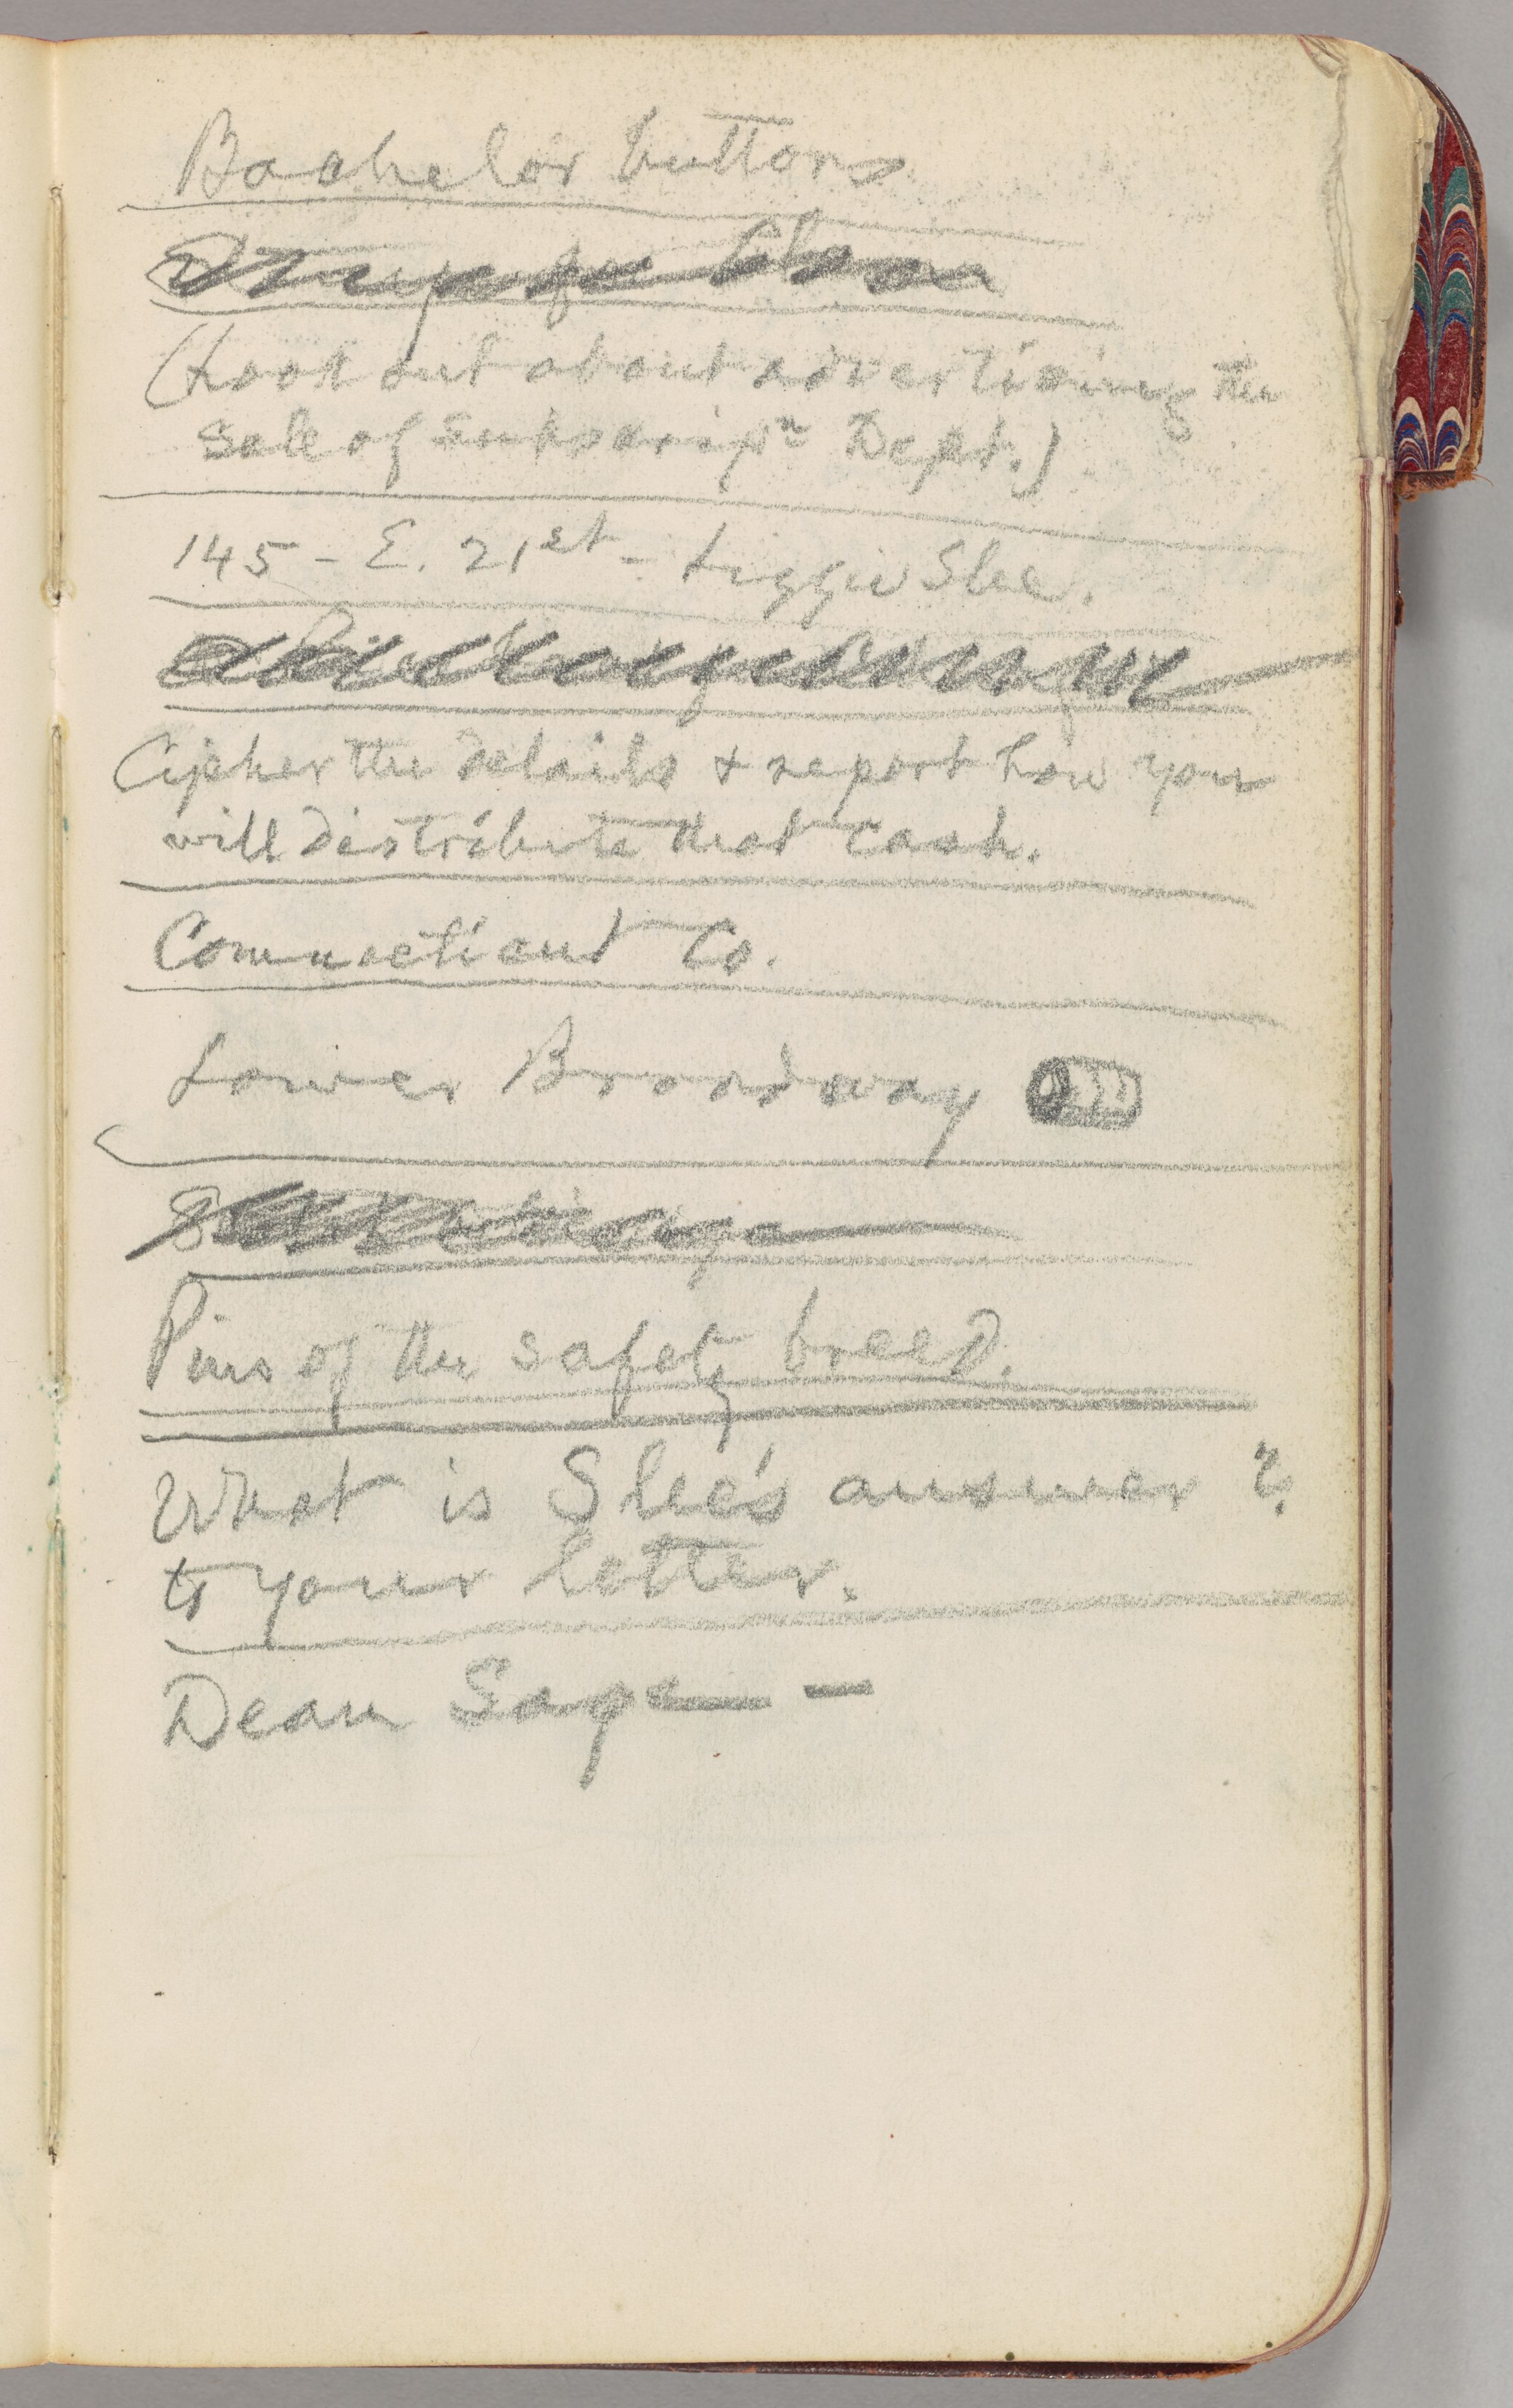 Bachelor buttons
(Look out about advertising the
sale of subscripn Dept.)
145 - E. 21st - Liggie Slee.
Cipher the details & report how you
will distribute that cash.
Connecticut Co.
Lower Broadway
Pins of the safety breed.
What is Slee's answer ?
to your letter.
Dean Sage —